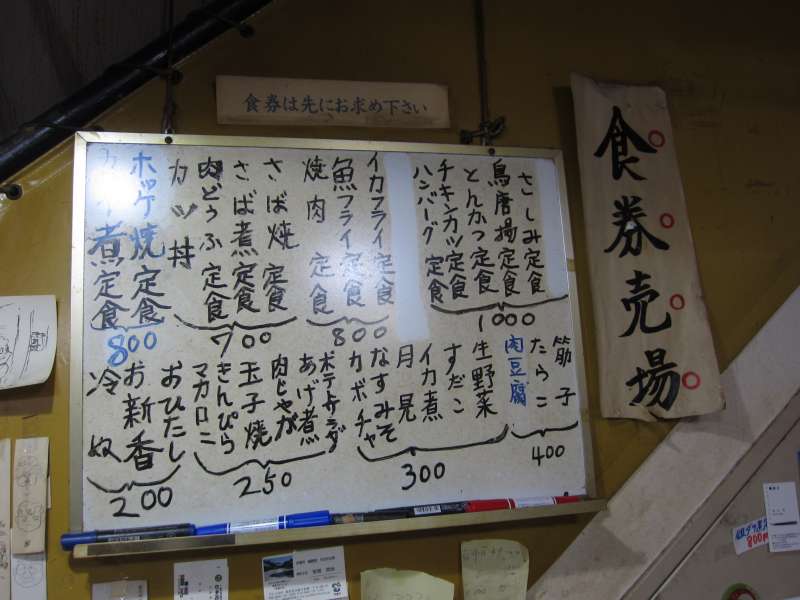 食券は先にお求め下さい
食券売場
さしみ定食
鳥唐揚定食
とんかつ定食
チキンカツ定食
ハンバーグ定食
1000
イカフライ定食
魚フライ定食
焼肉定食
800
さば焼定食
さば煮定食
肉どうふ定食
カツ丼
700
ホッケ焼定食
煮定食
800
筋子
たらこ
肉豆腐
400
生野菜
すだこ
イカ煮
月見
なすみそ
カボチャ
300
ポテトサラダ
あげ煮
肉じゃが
玉子焼
きんぴら
マカロニ
250
おひたし
お新香
冷奴
200